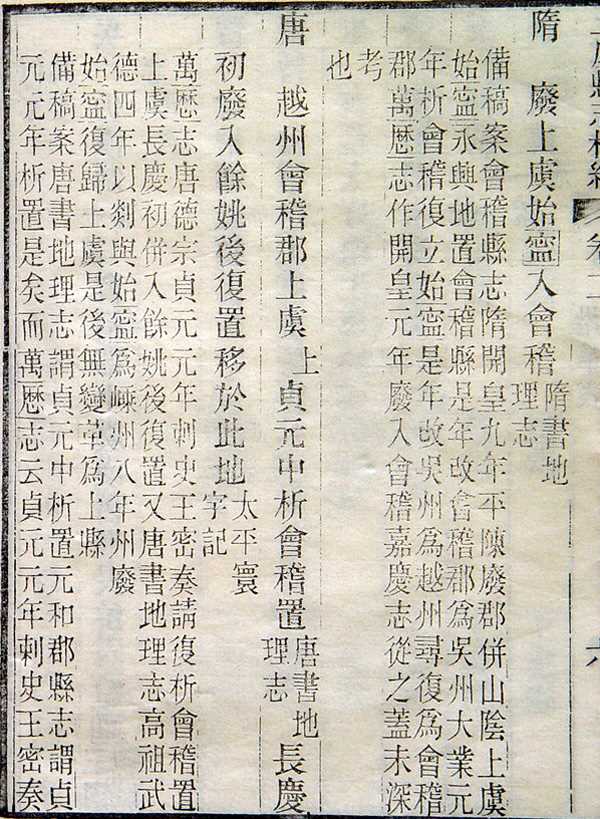 卷二
六
隋 廢上虞始寍入會稽隋書地理志
備稿案會稽縣志隋開皇九年平陳廢郡併山陰上虞
始寍永興地置會稽縣是年改會稽郡爲吳州大業元
年析會稽復立始寍是年改吳州爲越州尋復爲會稽
郡萬歷志作開皇元年廢入會稽嘉慶志從之蓋未深
考
也
唐 越州會稽郡上虞上貞元中析會稽置唐書地理志長慶
初廢入餘姚後復置移於此地太平寰宇記
萬歷志唐德宗貞元元年刺史王密奏請復析會稽置
上虞長慶初併入餘姚後復置又唐書地理志高祖武
德四年以剡與始寍爲嵊州八年州廢
始寍復歸上虞是後無變革爲上縣
備稿案唐書地理志謂貞元中析置元和郡縣志謂貞
元元年析置是矣而萬歷志云貞元元年刺史王密奏